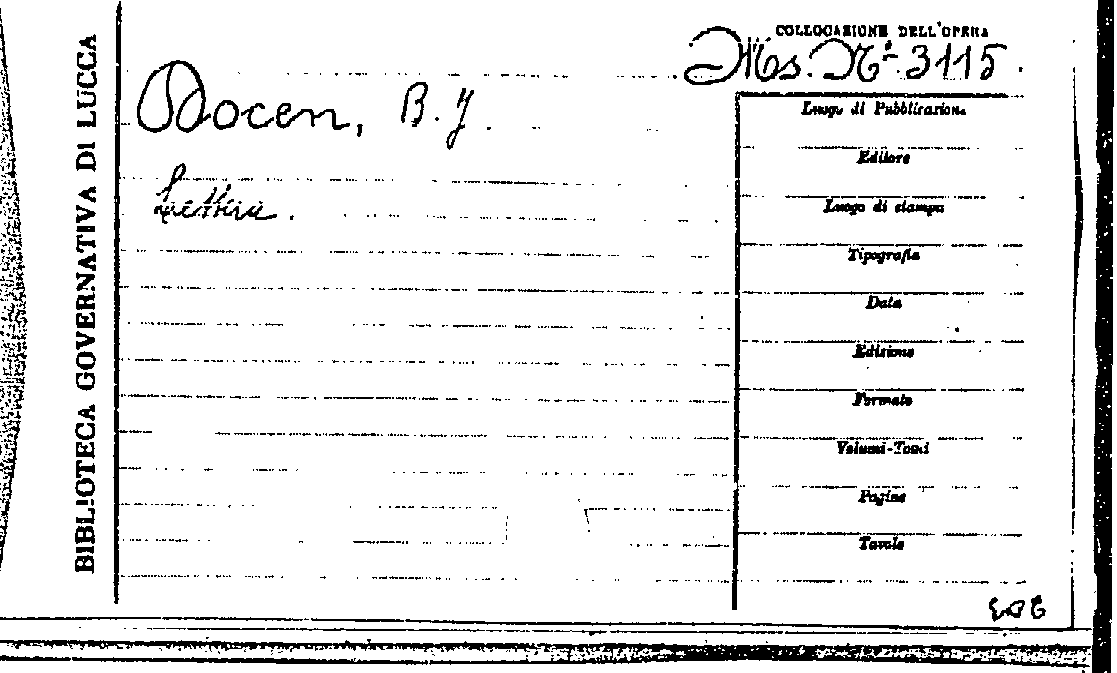 BIBLIOTECA GOVERNATIVA DI LUCCA
COLLOCAZIONE DELL'OPERA
Ms. N.º 3115.
Docen, B. J.
Lettera.
Luogo di Pubblicazione
Editore
Luogo di stampa
Tipografia
Data
Edizione
Formato
Volumi-Tomi
Pagine
Tavole